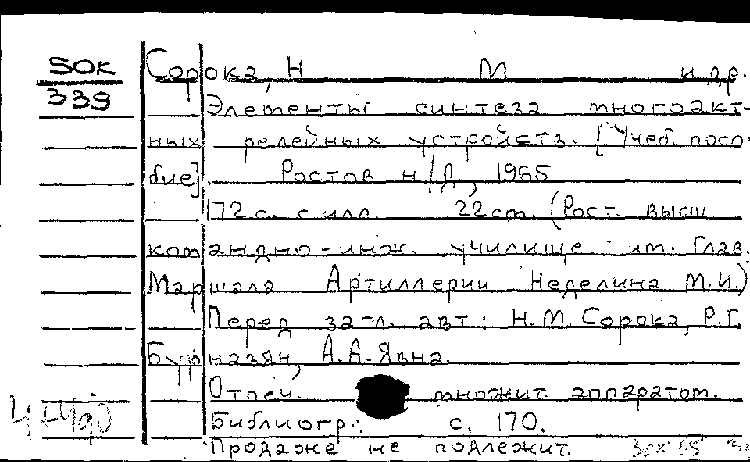 SOK Сорока, Н М и др.
339 Элементы синтеза многоакт-
ных релейных устройств. [Учеб. посо-
бие] Ростов н/Д, 1965
172 с. с илл. 22 см. (Рост. высш
командно-инж. училище им. Глав.
Маршала Артиллерии Неделина М.И.)
Перед загл. авт.: Н.М. Сорока, Р.Г.
Бурназян, А.А. Явна.
Отпеч. множит. аппаратом.
Библиогр.: с. 170.
Продаже не подлежит.